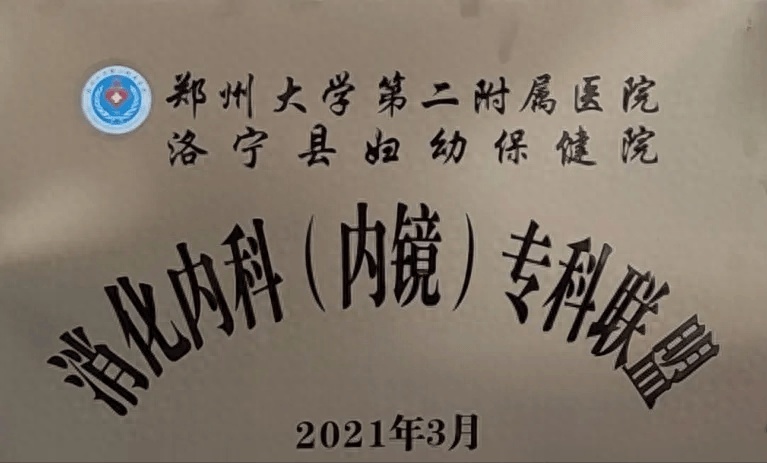 郑州大学第二附属医院
洛宁县妇幼保健院
消化内科（内镜）专科联盟
2021年3月